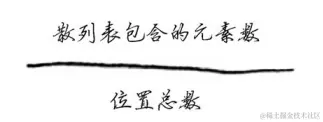 散列表包含的元素数
位置总数
@稀土掘金技术社区